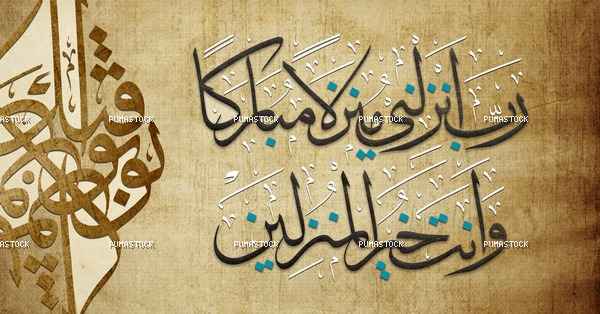 رَبِّ أَنْزِلْنِي مُنْزَلًا مُبَارَكًا
وَأَنْتَ خَيْرُ الْمُنْزِلِينَ
PUMASTOCK PUMASTOCK PUMASTOCK PUMASTOCK PUMASTOCK
PUMASTOCK PUMASTOCK PUMASTOCK PUMASTOCK PUMASTOCK